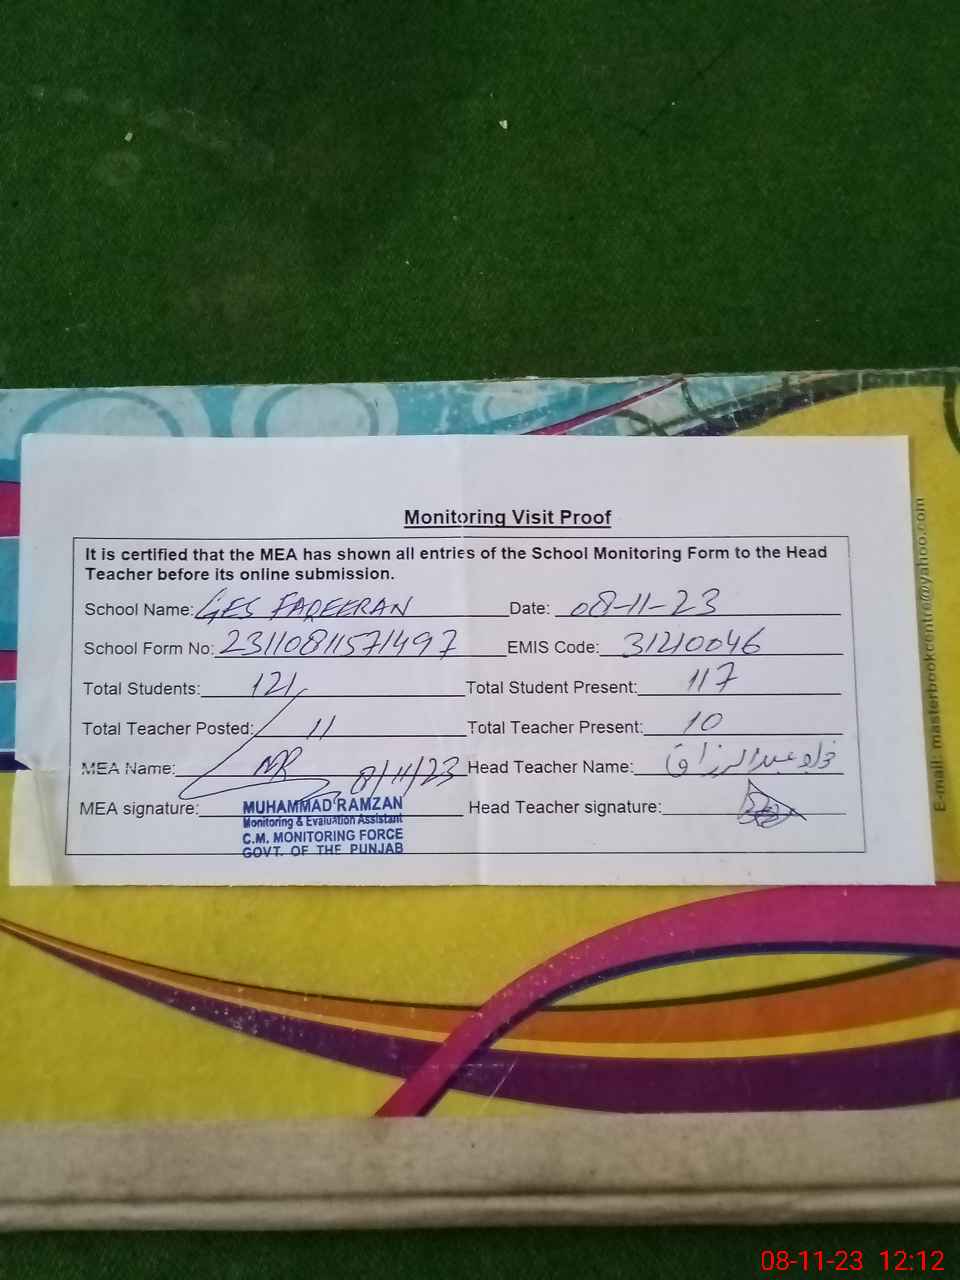 Monitoring Visit Proof
It is certified that the MEA has shown all entries of the School Monitoring Form to the Head
Teacher before its online submission.
School Name: GES FAQEERAN Date: 08-11-23
School Form No: 2311081571497 EMIS Code: 31210046
Total Students: 121 Total Student Present: 117
Total Teacher Posted: 11 Total Teacher Present: 10
MEA Name: MR 8/11/23 Head Teacher Name: عبدالرزاق
MEA signature: Head Teacher signature:
MUHAMMAD RAMZAN
Monitoring & Evaluation Assistant
C.M. MONITORING FORCE
GOVT. OF THE PUNJAB
E-mail: masterbookcentre@yahoo.com
08-11-23 12:12